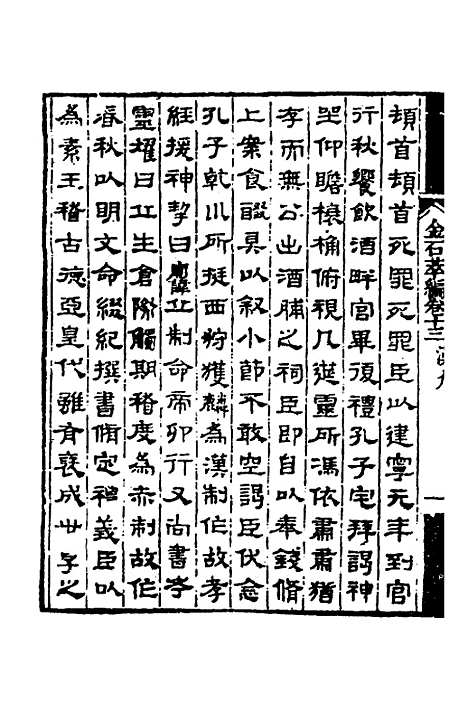 頓首頓首死罪死罪臣以建寧元年到官
行秋饗飲酒畔宮畢復禮孔子宅拜謁神
坐仰瞻榱桷俯視几筵靈所馮依肅肅猶
存而無公出酒脯之祠臣即自以奉錢脩
上案食醊具以叙小節不敢空謁臣伏念
孔子乾川所挺西狩獲麟為漢制作故孝
經援神挈曰廟諱丘制命帝卯行又尚書考
靈燿曰丘生倉際觸期稽度為赤制故作
春秋以明文命綴紀撰書脩定禮義臣以
為素王稽古德亞皇代雖有褒成世享之
金石萃編卷十三 漢九 一